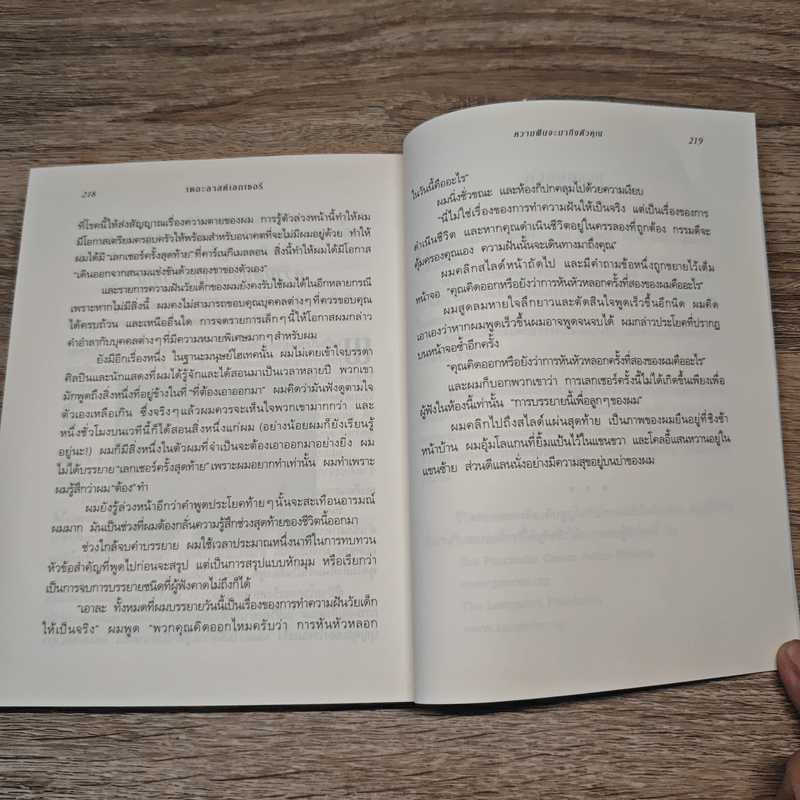 218
เดอะลาสต์เลกเชอร์
ที่โรคนี้ให้ส่งสัญญาณเรื่องความตายของผม การรู้ตัวล่วงหน้านี้ทำให้ผม
มีโอกาสเตรียมครอบครัวให้พร้อมสำหรับอนาคตที่จะไม่มีผมอยู่ด้วย ทำให้
ผมได้มี “เลกเชอร์ครั้งสุดท้าย” ที่คาร์เนกีเมลลอน สิ่งนี้ทำให้ผมได้มีโอกาส
“เดินออกจากสนามแข่งขันด้วยสองขาของตัวเอง”
และรายการความฝันวัยเด็กของผมยังคงรับใช้ผมได้ในอีกหลายกรณี
เพราะหากไม่มีสิ่งนี้ ผมคงไม่สามารถขอบคุณบุคคลต่างๆ ที่ควรขอบคุณ
ได้ครบถ้วน และเหนืออื่นใด การจดรายการเล็กๆ นี้ให้โอกาสผมกล่าว
คำอำลากับบุคคลต่างๆ ที่มีความหมายพิเศษมากๆ สำหรับผม
ยังมีอีกเรื่องหนึ่ง ในฐานะมนุษย์ไฮเทคนั้น ผมไม่เคยเข้าใจบรรดา
ศิลปินและนักแสดงที่ผมได้รู้จักและได้สอนมาเป็นเวลาหลายปี พวกเขา
มักพูดถึงสิ่งหนึ่งที่อยู่ข้างในที่ “ที่ต้องเอาออกมา” ผมคิดว่ามันฟังดูตามใจ
ตัวเองเหลือเกิน ซึ่งจริงๆ แล้วผมควรจะเห็นใจพวกเขามากกว่า และ
หนึ่งชั่วโมงบนเวทีนี้ก็ได้สอนสิ่งหนึ่งแก่ผม (อย่างน้อยผมก็ยังเรียนรู้
อยู่นะ!) ผมก็มีสิ่งหนึ่งในตัวผมที่จำเป็นจะต้องเอาออกมาอย่างยิ่ง ผม
ไม่ได้บรรยาย “เลกเชอร์ครั้งสุดท้าย” เพราะผมอยากทำเท่านั้น ผมทำเพราะ
ผมรู้สึกว่าผม “ต้อง” ทำ
ผมยังรู้ล่วงหน้าอีกว่าคำพูดประโยคท้ายๆ นั้นจะสะเทือนอารมณ์
ผมมาก มันเป็นช่วงที่ผมต้องกลั่นความรู้สึกช่วงสุดท้ายของชีวิตนี้ออกมา
ช่วงใกล้จบคำบรรยาย ผมใช้เวลาประมาณหนึ่งนาทีในการทบทวน
หัวข้อสำคัญที่พูดไปก่อนจะสรุป แต่เป็นการสรุปแบบหักมุม หรือเรียกว่า
เป็นการจบการบรรยายชนิดที่ผู้ฟังคาดไม่ถึงก็ได้
“เอาละ ทั้งหมดที่ผมบรรยายวันนี้เป็นเรื่องของการทำความฝันวัยเด็ก
ให้เป็นจริง” ผมพูด “พวกคุณคิดออกไหมครับว่า การหันหัวหลอก
ความฝันจะมาถึงตัวคุณ
219
ในวันนี้คืออะไร”
ผมนิ่งชั่วขณะ และห้องก็ปกคลุมไปด้วยความเงียบ
“นี่ไม่ใช่เรื่องของการทำความฝันให้เป็นจริง แต่เป็นเรื่องของการ
ดำเนินชีวิต และหากคุณดำเนินชีวิตอยู่ในครรลองที่ถูกต้อง กรรมดีจะ
คุ้มครองคุณเอง ความฝันนั้นจะเดินทางมาถึงคุณ”
ผมคลิกสไลด์หน้าถัดไป และมีคำถามข้อหนึ่งถูกขยายไว้เต็ม
หน้าจอ “คุณคิดออกหรือยังว่าการหันหัวหลอกครั้งที่สองของผมคืออะไร”
ผมสูดลมหายใจลึกยาวและตัดสินใจพูดเร็วขึ้นอีกนิด ผมคิด
เอาเองว่าหากผมพูดเร็วขึ้นผมอาจพูดจนจบได้ ผมกล่าวประโยคที่ปรากฏ
บนหน้าจอซ้ำอีกครั้ง
“คุณคิดออกหรือยังว่าการหันหัวหลอกครั้งที่สองของผมคืออะไร”
และผมก็บอกพวกเขาว่า การเลกเชอร์ครั้งนี้ไม่ได้เกิดขึ้นเพียงเพื่อ
ผู้ฟังในห้องนี้เท่านั้น “การบรรยายนี้เพื่อลูกๆ ของผม”
ผมคลิกไปถึงสไลด์แผ่นสุดท้าย เป็นภาพของผมยืนอยู่ที่ชิงช้า
หน้าบ้าน ผมอุ้มโลแกนที่ยิ้มแป้นไว้ในแขนขวา และโคลอี้แสนหวานอยู่ใน
แขนซ้าย ส่วนดีแลนนั่งอย่างมีความสุขอยู่บนบ่าของผม